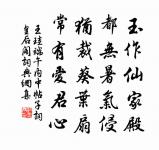 玉作仙家殿
都無暑氣侵
猶裁葵葉扇
常有愛君心
王珪端午內中帖子詞
皇后閣詞典網集